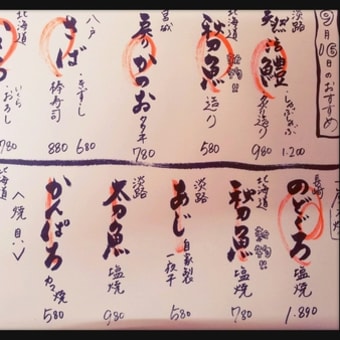 9月15日のおすすめ
淡路
天然活鱧
しゃぶしゃぶ 1.200
炙り造り 980
北海道
秋刀魚 新物!! 造り 580
宮城
戻りかつお タタキ 780
八戸
さば
きずし 680
棒寿司 880
北海道
いくら
おろし 780
長崎
のどぐろ 塩焼 1.890
北海道
秋刀魚 新物!! 塩焼 780
淡路
あじ 自家製一夜干 580
淡路
太刀魚 塩焼 980
かんぱち カマ焼 580
〈焼貝〉
北海道